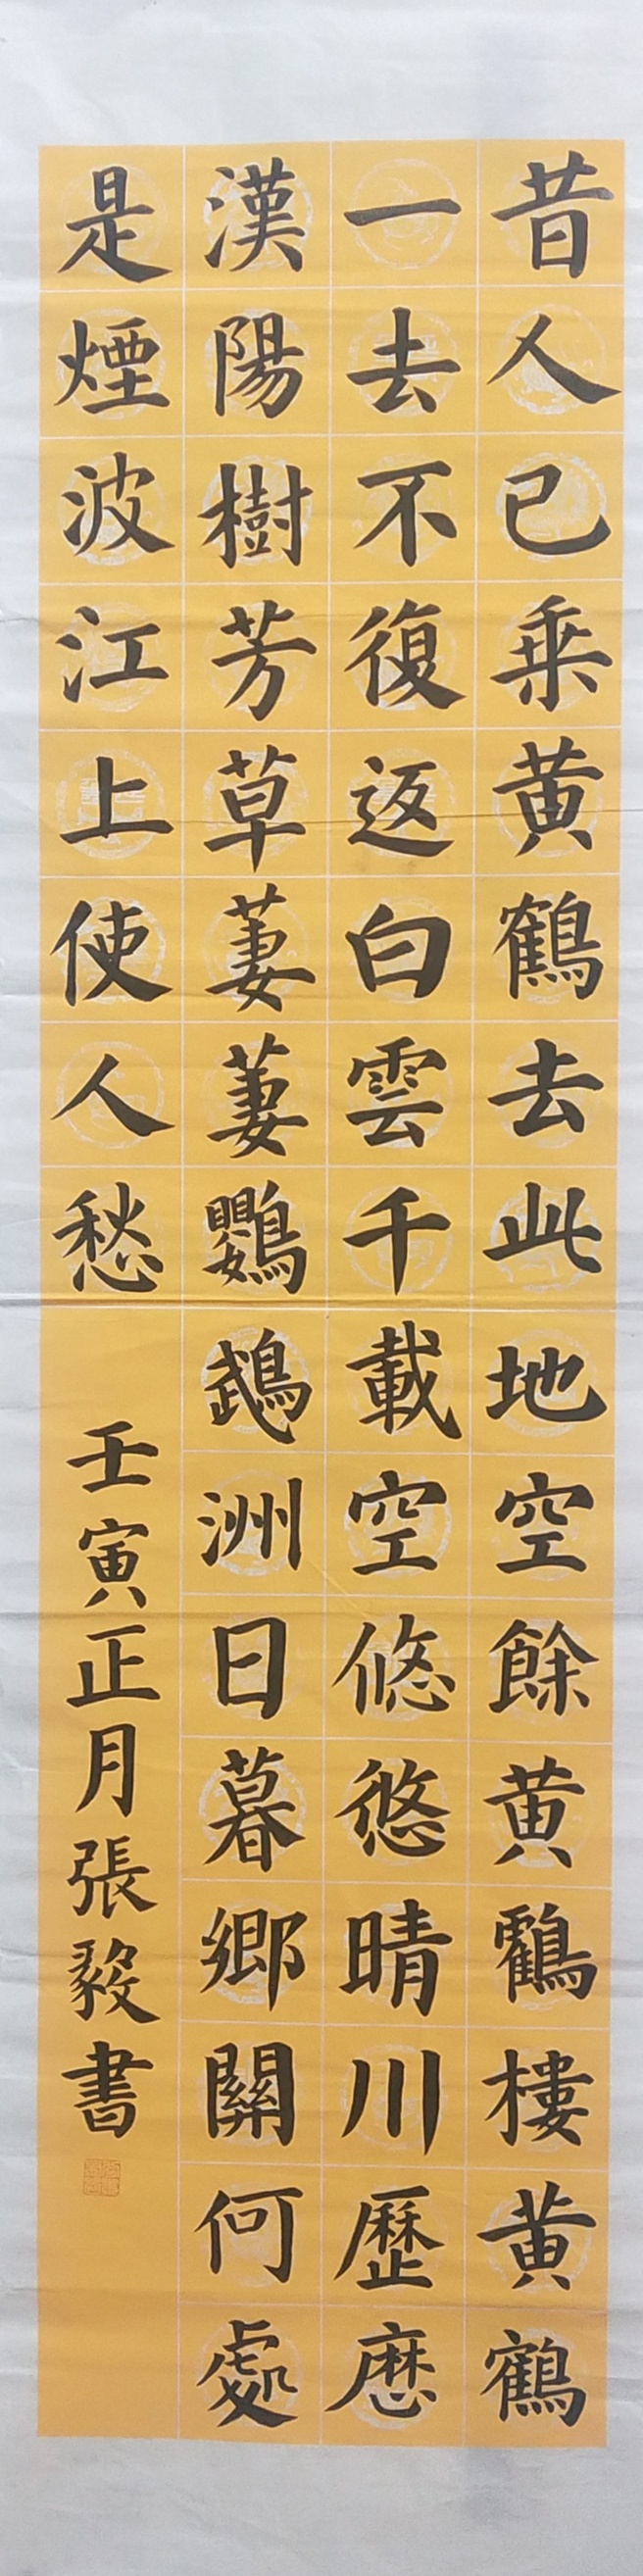 昔人已乘黄鶴去此地空餘黄鸖樓黄鶴
一去不復返白雲千載空悠悠晴川歷歷
漢陽樹芳草萋萋鸚鵡洲日暮鄉關何處
是煙波江上使人愁
壬寅正月張毅書